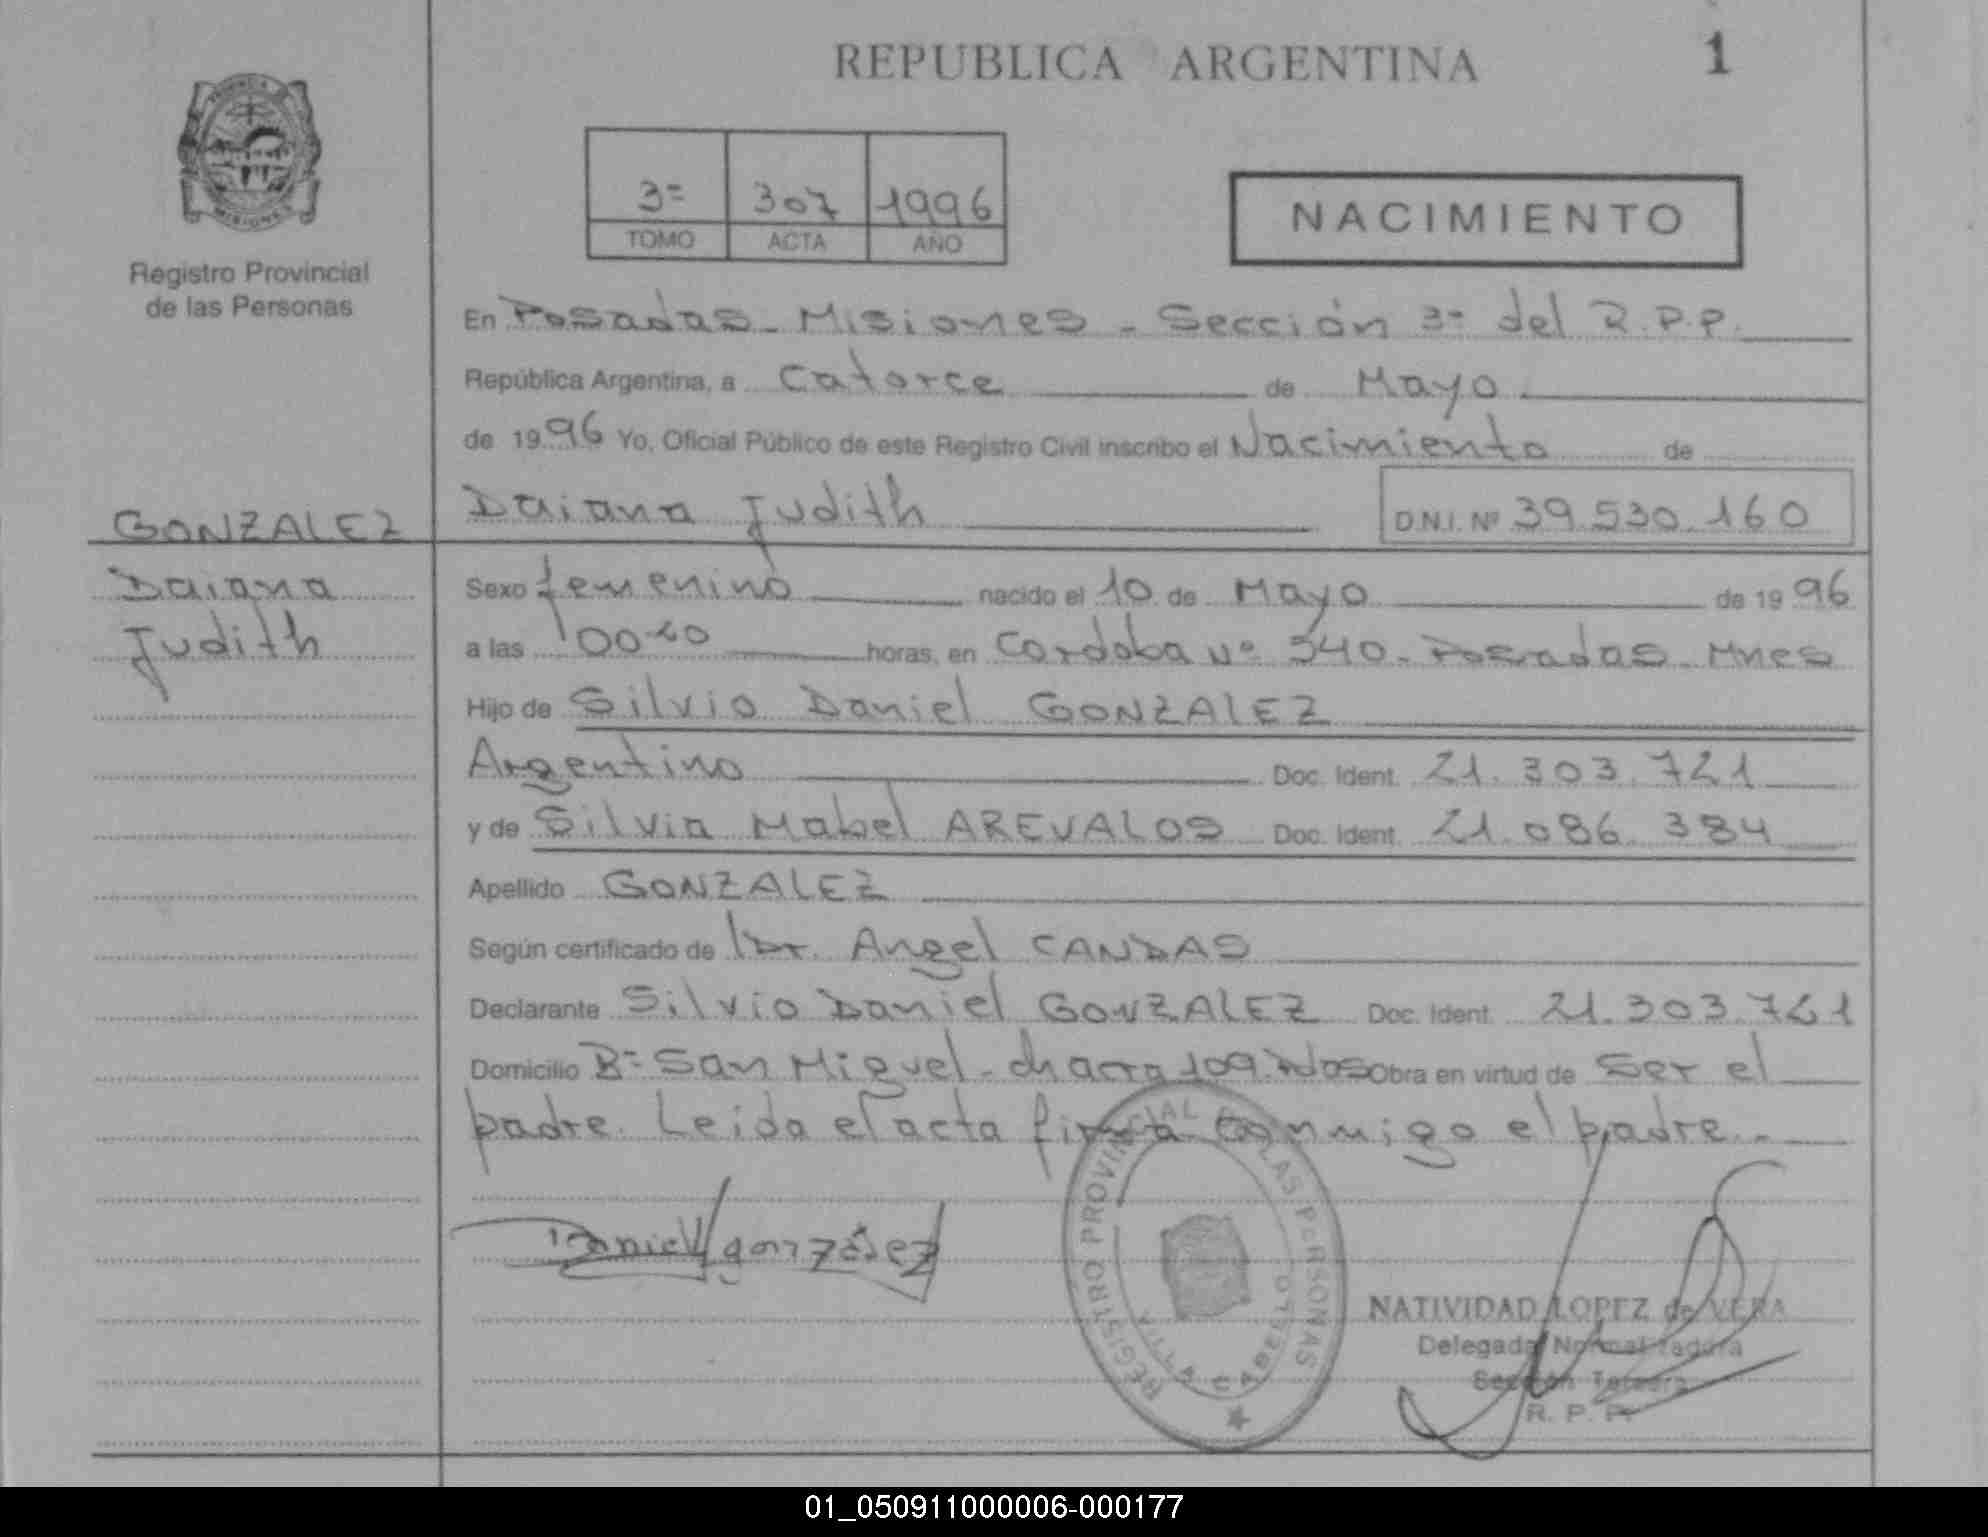 REPUBLICA ARGENTINA
1
PROVINCIA
MISIONES
Registro Provincial
de las Personas
3= 307 1996
TOMO ACTA AÑO
NACIMIENTO
En Posadas - Misiones - Sección 3= del R.P.P.
República Argentina, a Catorce de Mayo
de 1996 Yo, Oficial Público de este Registro Civil inscribo el Nacimiento de
GONZALEZ
Daiana Judith
D.N.I. Nº 39.530.160
Daiana
Judith
Sexo femenino nacido el 10 de Mayo de 1996
a las horas, en Cordoba Nº 540. Posadas - Mnes
Hijo de Silvio Daniel GONZALEZ
Argentino Doc. Ident. 21.303.721
y de Silvia Mabel AREVALOS Doc. Ident. 21.086.384
Apellido GONZALEZ
Según certificado de Dr. Angel CANDAS
Declarante Silvio Daniel GONZALEZ Doc. Ident. 21.303.721
Domicilio B= San Miguel - chacra 109. Pdos Obra en virtud de ser el
padre. Leida el acta firma conmigo el padre. -
Daniel gonzález
REGISTRO PROVINCIAL DE LAS PERSONAS
NATIVIDAD LOPEZ de VERA
Delegada Normalizadora
Sección Tercera
R. P. P.
01_050911000006-000177